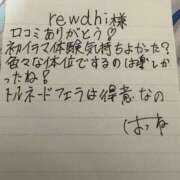 rewdhi様
口コミありがとう♡
初イラマ体験気持ちよかった?
色々な体位でするのは楽しかったね!
トルネードフェラは得意なの
はつね